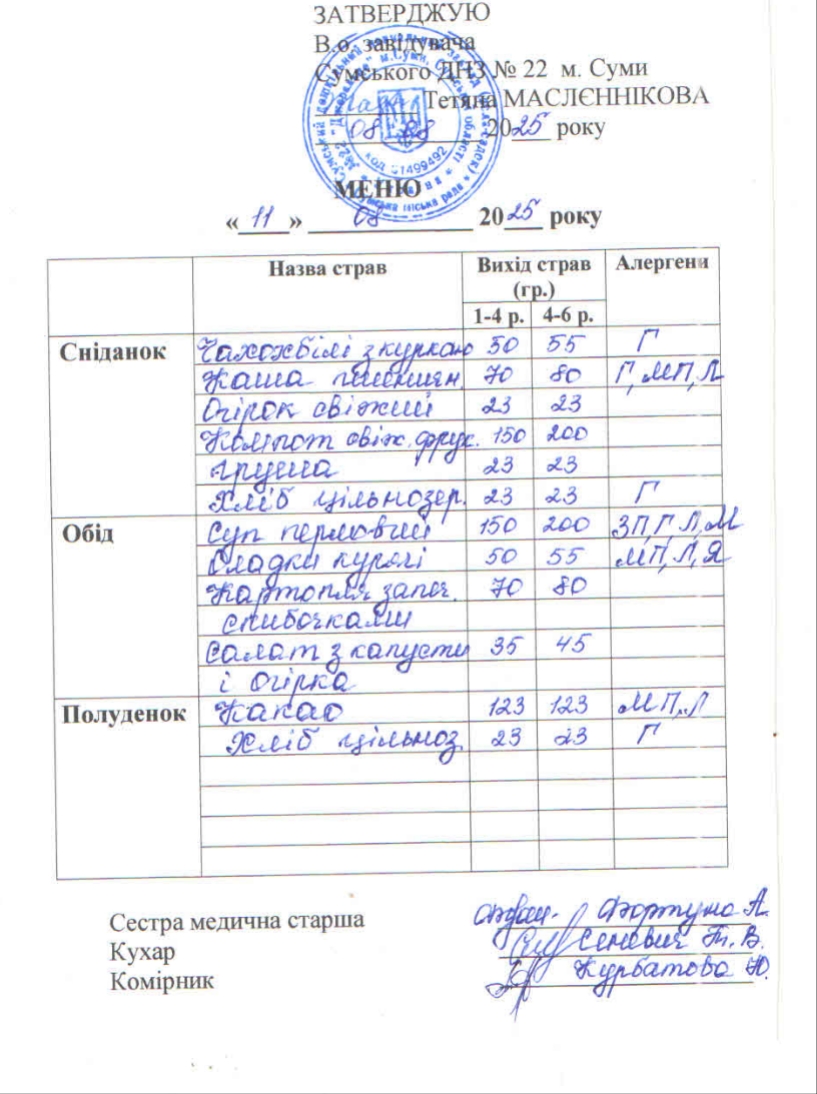 ЗАТВЕРДЖУЮ
В.о. завідувача
Сумського ДНЗ № 22 м. Суми
Тетяна МАСЛЄННІКОВА
08 08 2025 року
код 31499492
МЕНЮ
« 11 » 08 2025 року
Назва страв Вихід страв (гр.) Алергени
1-4 р. 4-6 р.
Сніданок Чахохбілі з куркою 50 55 Г
Каша пшеничн. 70 80 Г, МП, Л
Огірок свіжий 23 23
Компот свіж. фрук. 150 200
груша 23 23
Хліб цільнозер. 23 23 Г
Обід Суп перловий 150 200 ЗП, Г, Л, М
Оладки курячі 50 55 МП, Л, Я
Картопля запеч. 70 80
скибочками
Салат з капусти 35 45
і огірка
Полуденок Какао 123 123 МП, Л
Хліб цільноз. 23 23 Г
Сестра медична старша Фортуна А.
Кухар Сеневич Т. В.
Комірник Курбатова Ю.